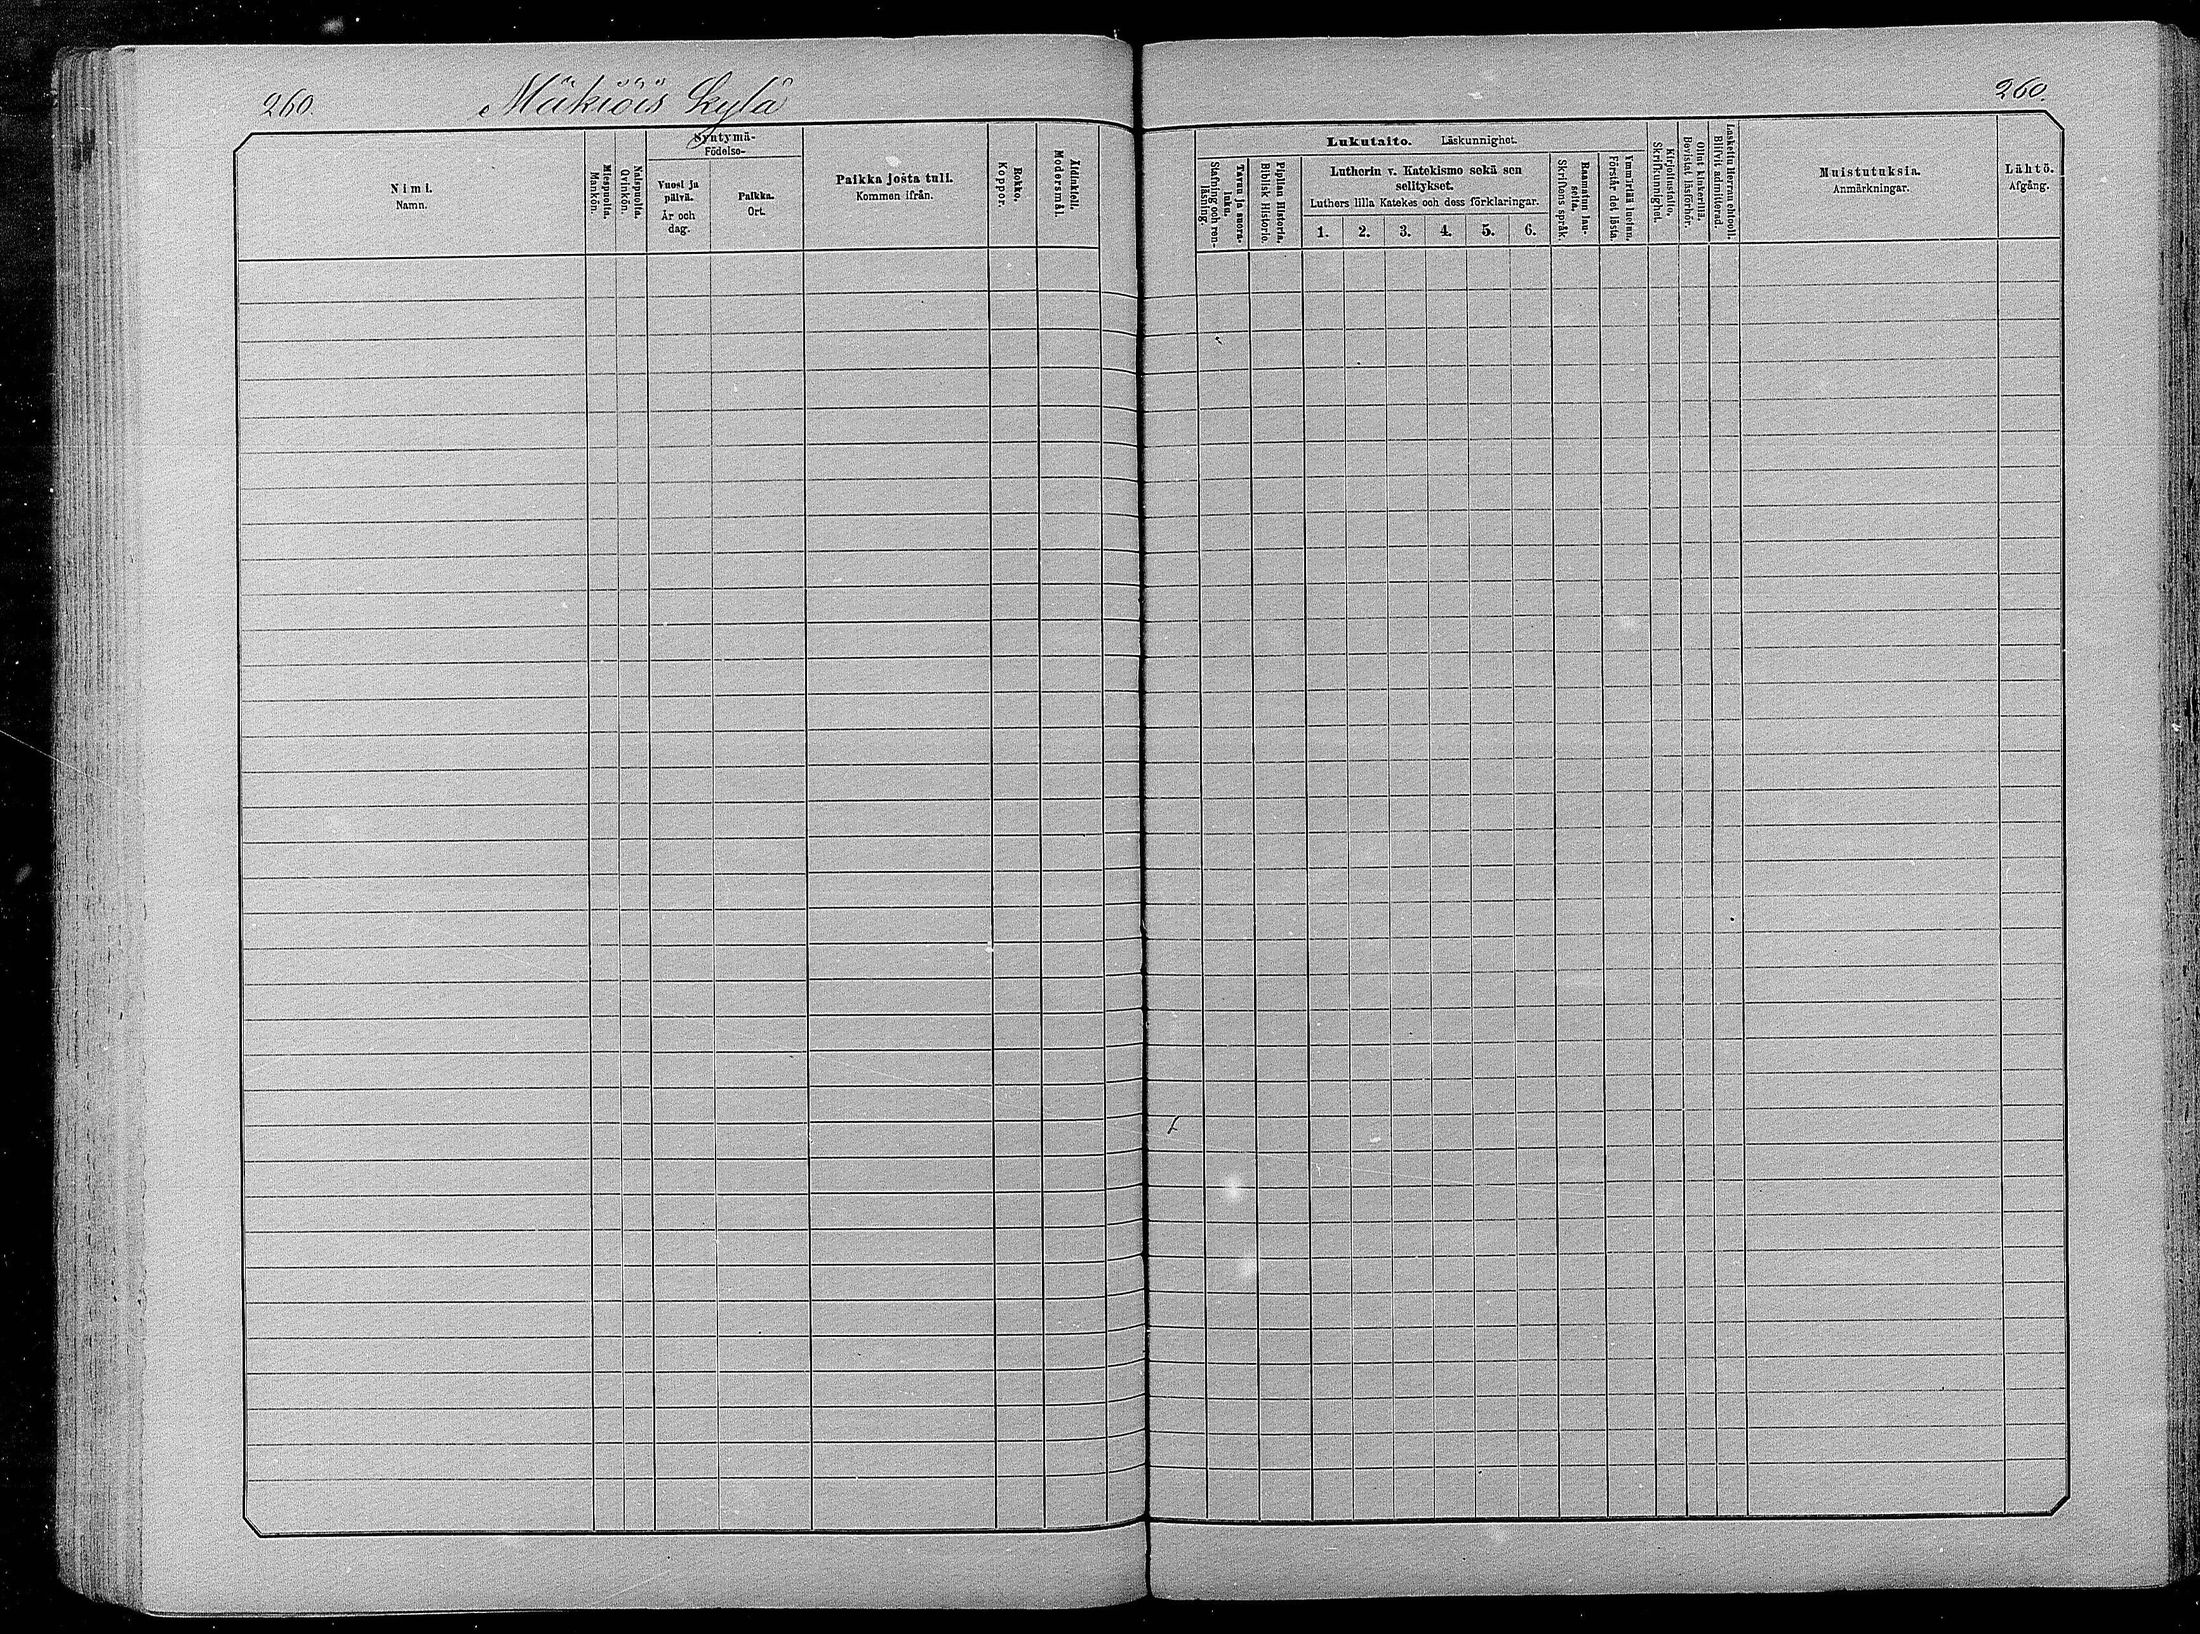 260. Mäkiöis Kylä 260.
Nimi.
Namn.
Miespuolia.
Mankön.
Naispuolia.
Qvinkön.
Syntymä-
Födelse-
Vuosi ja
päivä.
År och
dag.
Paikka.
Ort.
Paikka josta tuli.
Kommen ifrån.
Rokko.
Koppor.
Äidinkieli.
Modersmål.
Lukutaito. Läskunnighet.
Tavuu ja suora-
luku.
Stafning och ren-
läsning.
Piplian Historia.
Biblisk Historie.
Lutherin v. Katekismo sekä sen
selitykset.
Luthers lilla Katekes och dess förklaringar.
1. 2. 3. 4. 5. 6.
Raamatun lau-
seita.
Skriftens språk.
Ymmärtää luetun.
Förstår det lästa.
Kirjoitustaito.
Skrifkunnighet.
Ollut kinkerillä.
Bevistat läsförhör.
Laskettu Herran ehtooll.
Blifvit admitterad.
Muistutuksia.
Anmärkningar.
Lähtö.
Afgång.